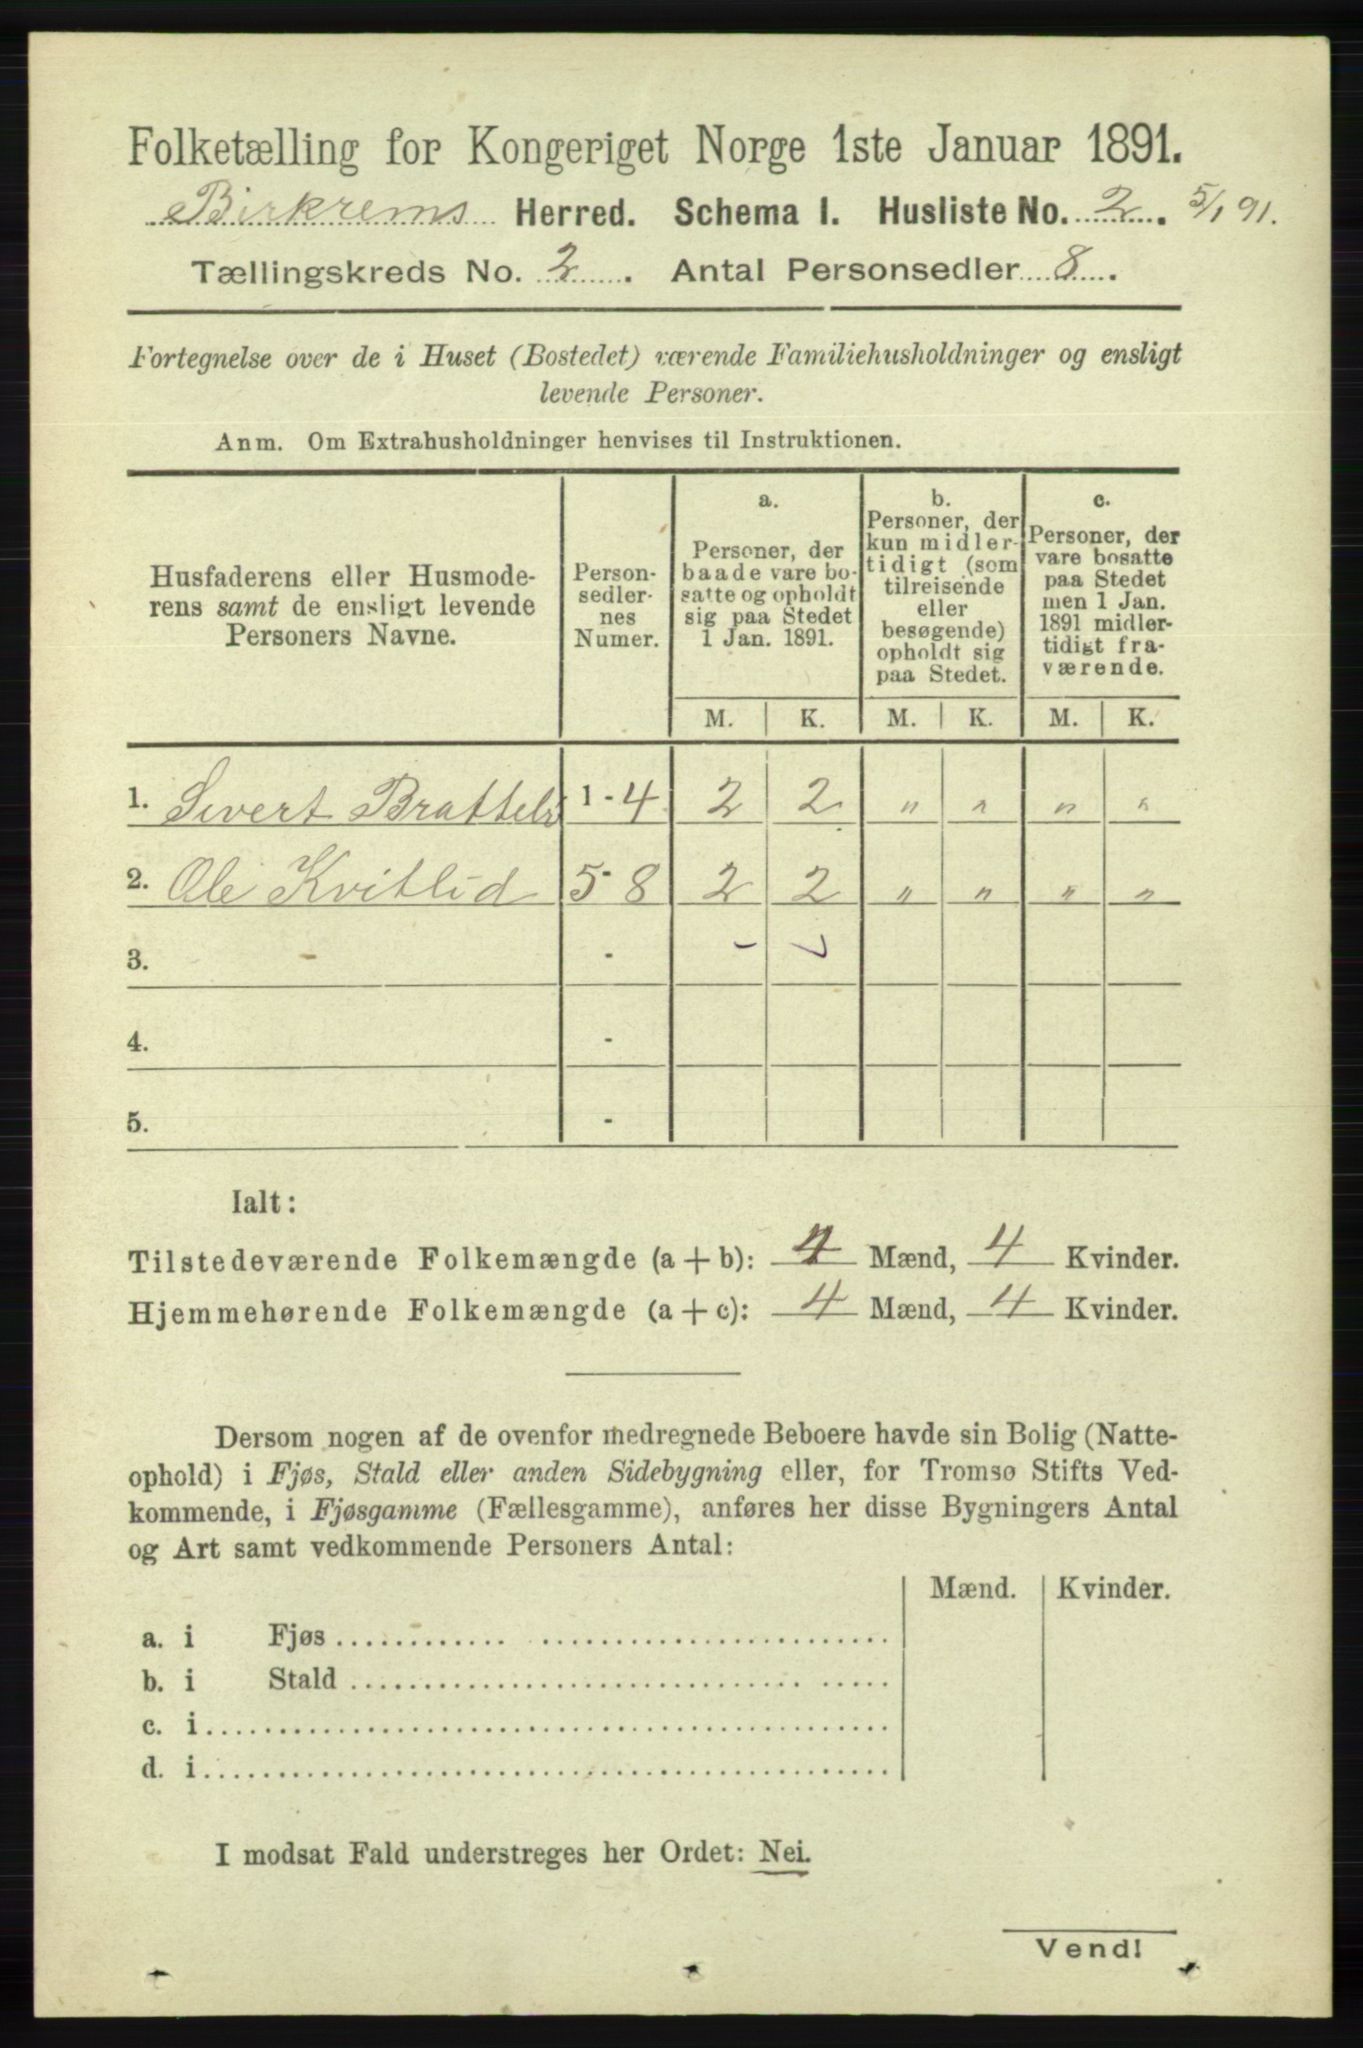 Folketælling for Kongeriget Norge 1ste Januar 1891.
Birkrems Herred. Schema I. Husliste No. 2. 5/1 91.
Tællingskreds No. 2. Antal Personsedler 8.
Fortegnelse over de i Huset (Bostedet) værende Familiehusholdninger og ensligt
levende Personer.
Anm. Om Extrahusholdninger henvises til Instruktionen.
Husfaderens eller Husmode-
rens samt de ensligt levende
Personers Navne.
Person-
sedler-
nes
Numer.
a.
Personer, der
baade vare bo-
satte og opholdt
sig paa Stedet
1 Jan. 1891.
b.
Personer, der
kun midler-
tidigt (som
tilreisende
eller
besøgende)
opholdt sig
paa Stedet.
c.
Personer, der
vare bosatte
paa Stedet
men 1 Jan.
1891 midler-
tidigt fra-
værende.
M. K. M. K. M. K.
1. Sivert 1 - 4 2 2 " " " "
2. Ole Kvitlid 5 - 8 2 2 " " " "
3. -
4. -
5. -
Ialt:
Tilstedeværende Folkemængde (a + b): 4 Mænd, 4 Kvinder.
Hjemmehørende Folkemængde (a + c): 4 Mænd, 4 Kvinder.
Dersom nogen af de ovenfor medregnede Beboere havde sin Bolig (Natte-
ophold) i Fjøs, Stald eller anden Sidebygning eller, for Tromsø Stifts Ved-
kommende, i Fjøsgamme (Fællesgamme), anføres her disse Bygningers Antal
og Art samt vedkommende Personers Antal:
Mænd. Kvinder.
a. i Fjøs
b. i Stald
c. i
d. i
I modsat Fald understreges her Ordet: Nei.
Vend!